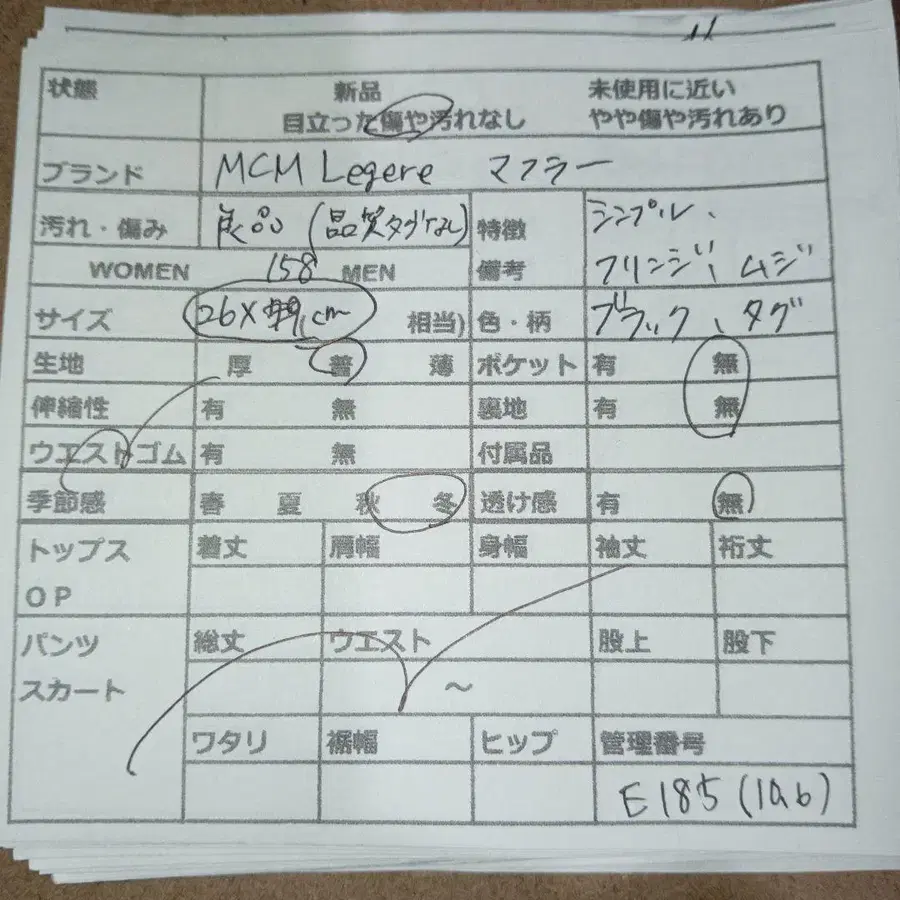 状態 新品 未使用に近い
目立った傷や汚れなし やや傷や汚れあり
ブランド MCM Legere マフラー
汚れ・傷み 良品 (品質タグなし)
特徴 シンプル、
WOMEN 158 MEN
備考 フリンジ、ムジ
サイズ 26× cm 相当) 色・柄 ブラック、タグ
生地 厚 普 薄 ポケット 有 無
伸縮性 有 無 裏地 有 無
ウエストゴム 有 無 付属品
季節感 春 夏 秋 冬 透け感 有 無
トップス 着丈 肩幅 身幅 袖丈 裄丈
OP
パンツ 総丈 ウエスト 股上 股下
スカート ～
ワタリ 裾幅 ヒップ 管理番号
E185